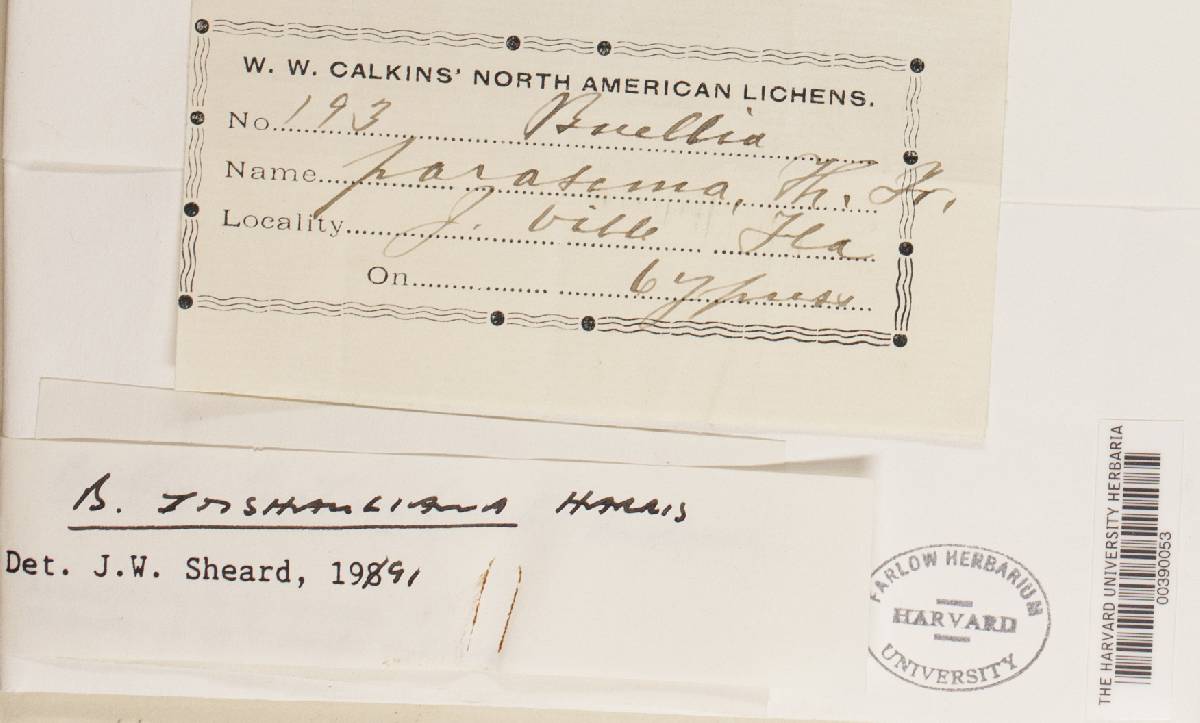 W. W. CALKINS' NORTH AMERICAN LICHENS.
No. 193 Buellia
Name parasema, Th. Fr.
Locality J. ville Fla
On Cypress
B. HARRIS
Det. J.W. Sheard, 1991
FARLOW HERBARIUM
HARVARD
UNIVERSITY
THE HARVARD UNIVERSITY HERBARIA
00390053